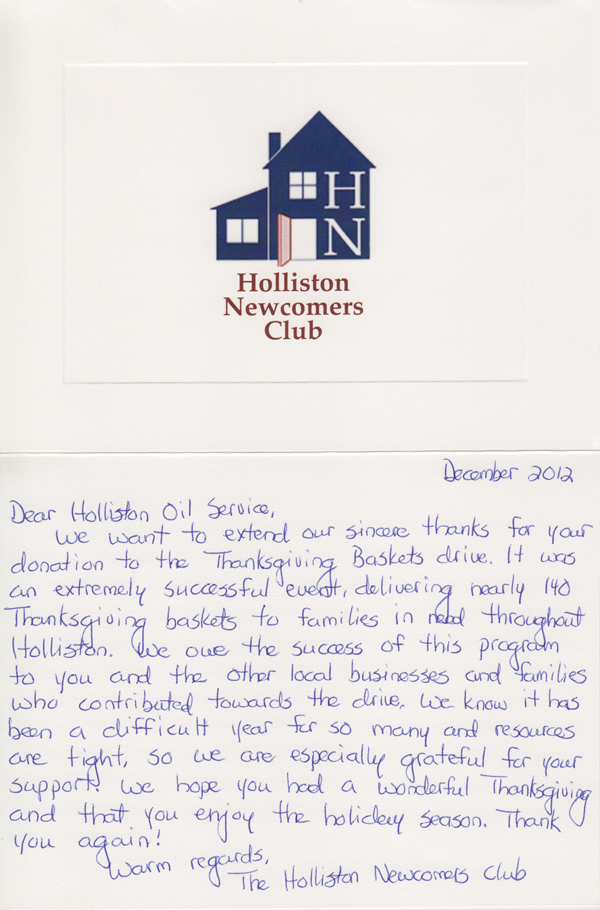 H
N
Holliston
Newcomers
Club
December 2012
Dear Holliston Oil Service,
We want to extend our sincere thanks for your
donation to the Thanksgiving Baskets drive. It was
an extremely successful event, delivering nearly 140
Thanksgiving baskets to families in need throughout
Holliston. We owe the success of this program
to you and the other local businesses and families
who contributed towards the drive. We know it has
been a difficult year for so many and resources
are tight, so we are especially grateful for your
support! We hope you had a wonderful Thanksgiving
and that you enjoy the holiday season. Thank
you again!
Warm regards,
The Holliston Newcomers Club